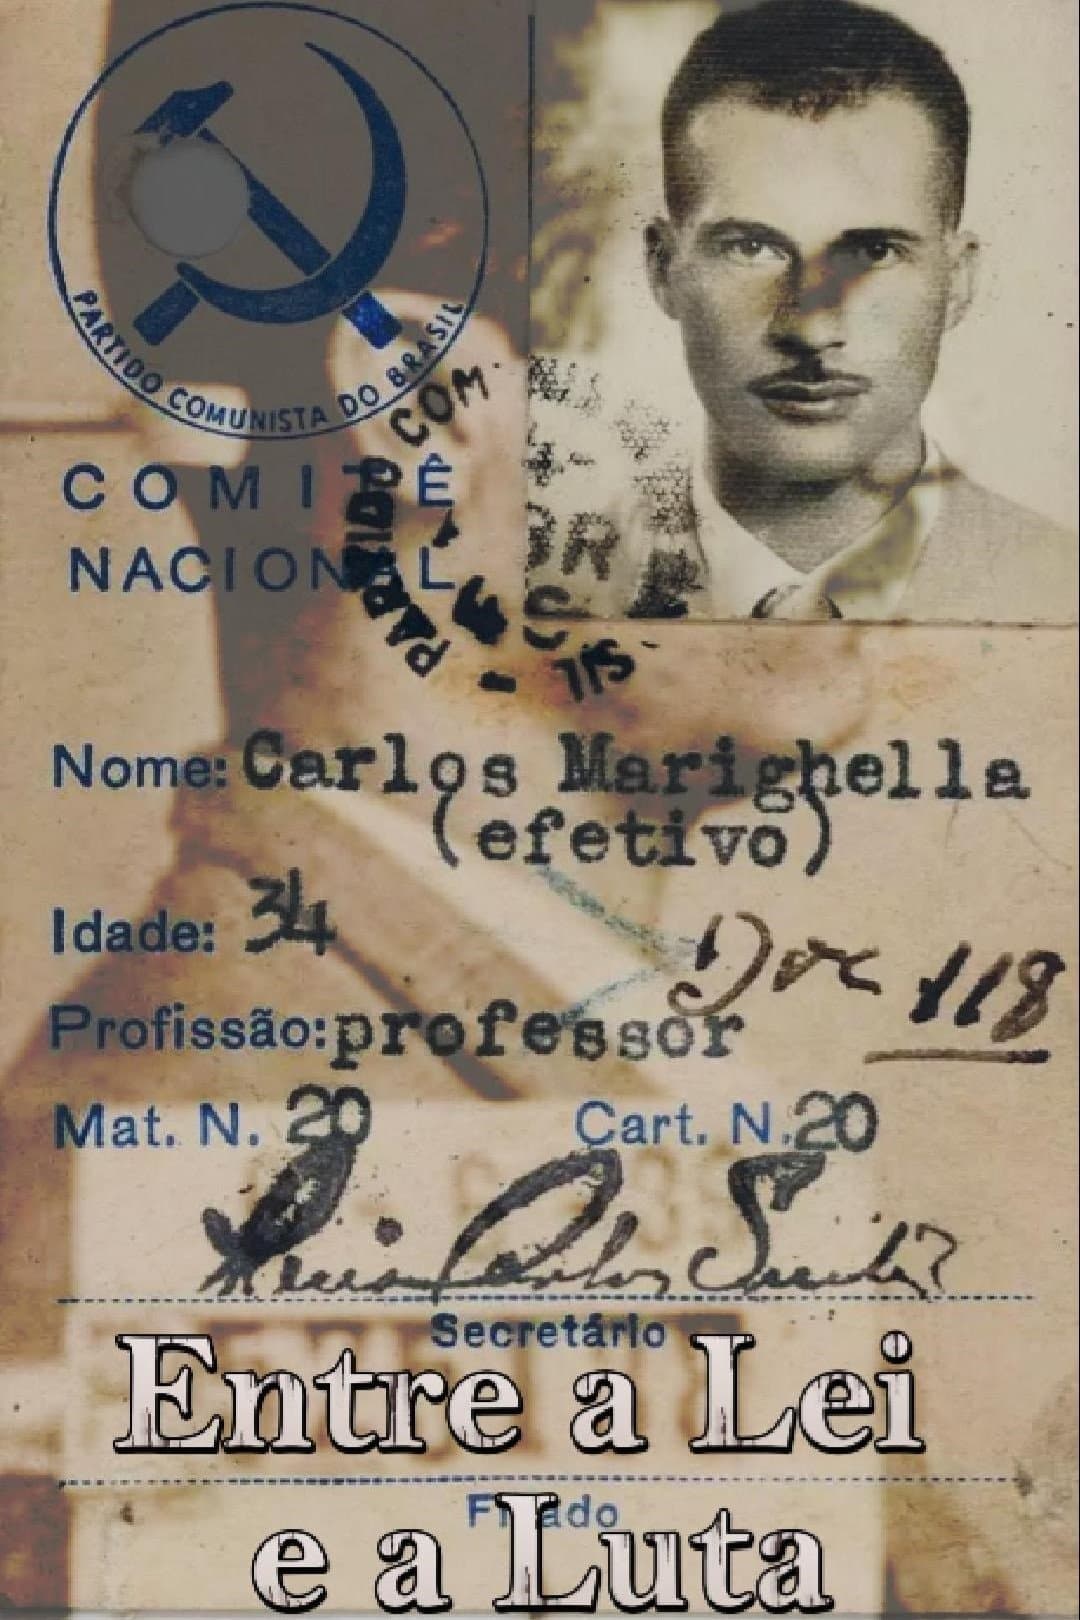 PARTIDO COMUNISTA DO BRASIL
COMITÊ
NACIONAL
PARTIDO COM.
SIL
Nome: Carlos Marighella
(efetivo)
Idade: 34
Doc 118
Profissão: professor
Mat. N. 20 Cart. N. 20
Secretário
Entre a Lei
Filiado
e a Luta